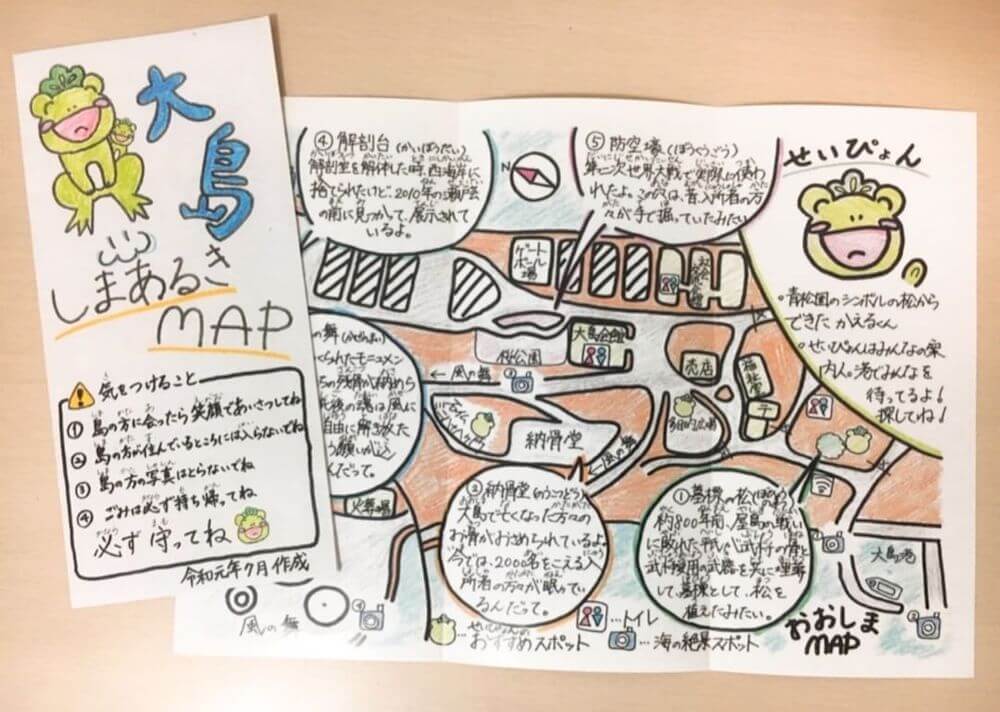 大島
しまあるき
MAP
気をつけること
① 島の方に会ったら笑顔であいさつしてね
② 島の方が住んでいるところには入らないでね
③ 島の方の写真はとらないでね
④ ごみは必ず持ち帰ってね
必ず守ってね
令和元年7月作成
④ 解剖台(かいぼうだい)
解剖室を解体した時、西海岸に
捨てられたけど、2010年の瀬戸芸
の前に見つかって、展示されて
いるよ。
N
⑤ 防空壕(ぼうくうごう)
第二次世界大戦で実際に使わ
れたよ。この穴は、昔、入所者の方
々が手で掘っていたみたい
せいぴょん
・青松園のシンボルの松から
できた かえるくん
・せいぴょんはみんなの案
内人。港でみんなを
待ってるよ!
探してね!
ゲート
ボール
場
大島会館
桜公園
売店
福祉室
← 風の舞
納骨堂
←風の舞
火葬場
の舞
られたモニュメン
死後の魂は風に
自由に解き放た
う願いが込
んだって。
② 納骨堂(のうこつどう)
大島で亡くなった方々の
お骨がおさめられているよ。
今では、2000名をこえる入
所者の方々が眠ってい
るんだって。
① 墓標の松(ぼひょう)
約800年前、屋島の戦い
に敗れた平氏が武将の骨と
武将使用の武器を共に埋葬
して、墓標として、松を
植えたみたい。
大島港
風の舞
…せいぴょんの
おすすめスポット
…トイレ
…海の絶景スポット
おおしま
MAP